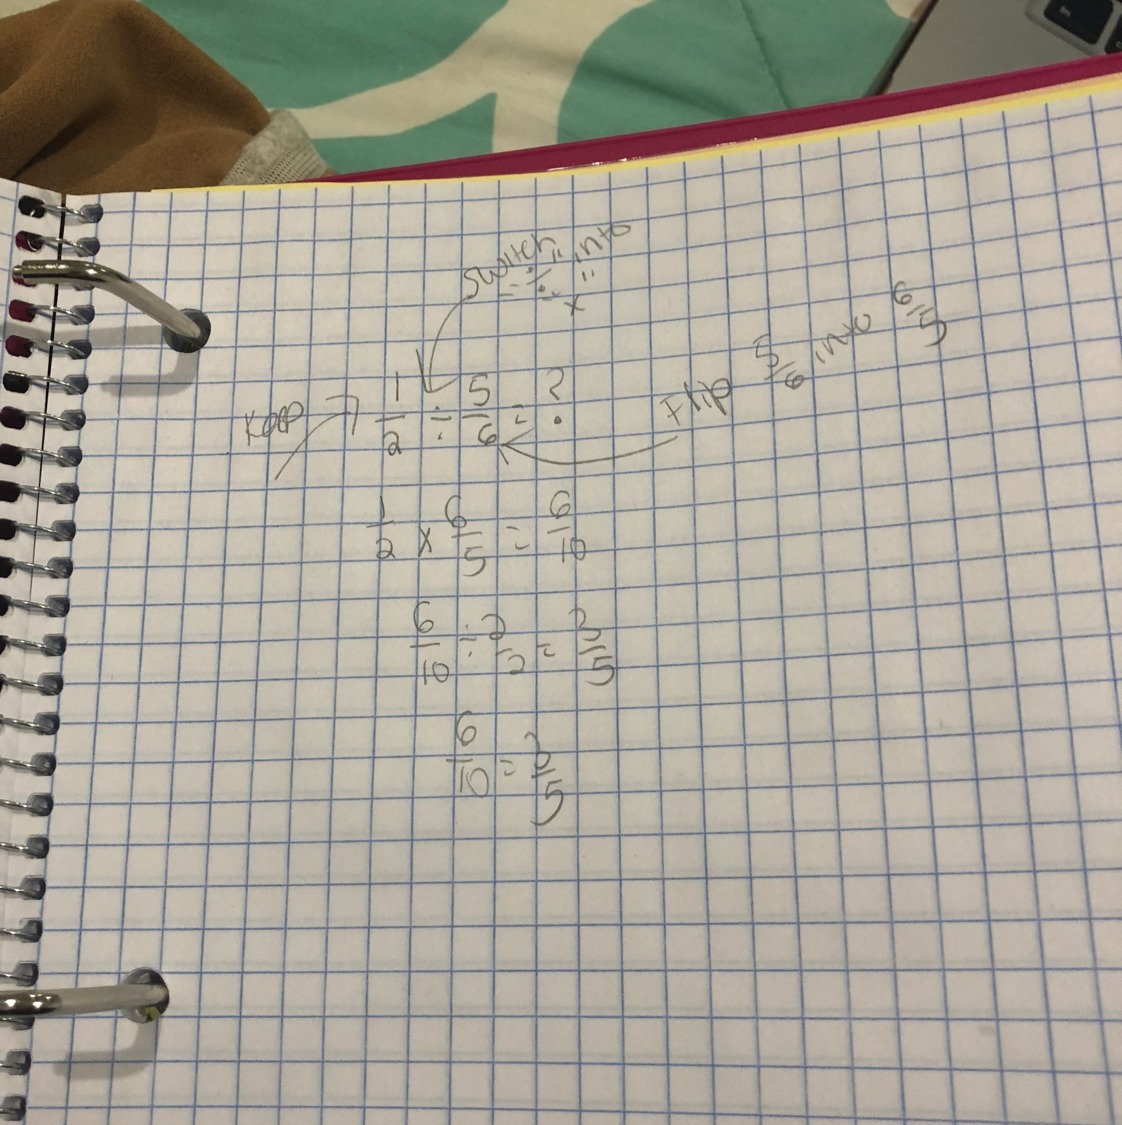 switch
"÷" into
"x"
Keep 1/2 ÷ 5/6 = ? Flip 5/6 into 6/5
1/2 x 6/5 = 6/10
6/10 ÷ 2/2 = 3/5
6/10 = 3/5